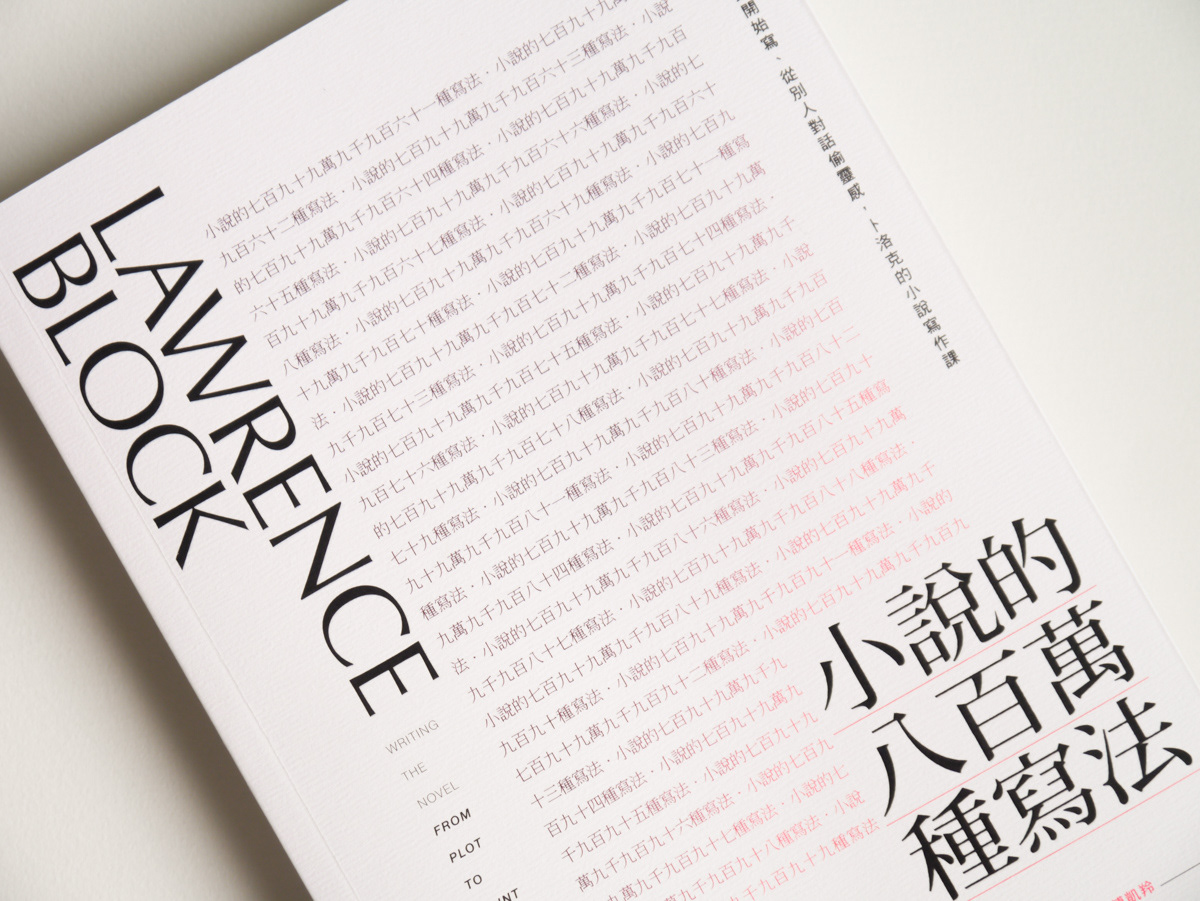 LAWRENCE
BLOCK
小說的七百九十九萬九千九百六十一種寫法．小說的七百九十九萬
九百六十二種寫法．小說的七百九十九萬九千九百六十三種寫法．小說
的七百九十九萬九千九百六十四種寫法．小說的七百九十九萬九千九百
六十五種寫法．小說的七百九十九萬九千九百六十六種寫法．小說的七
百九十九萬九千九百六十七種寫法．小說的七百九十九萬九千九百六十
八種寫法．小說的七百九十九萬九千九百六十九種寫法．小說的七百九
十九萬九千九百七十種寫法．小說的七百九十九萬九千九百七十一種寫
法．小說的七百九十九萬九千九百七十二種寫法．小說的七百九十九萬
九千九百七十三種寫法．小說的七百九十九萬九千九百七十四種寫法．
小說的七百九十九萬九千九百七十五種寫法．小說的七百九十九萬九千
九百七十六種寫法．小說的七百九十九萬九千九百七十七種寫法．小說
的七百九十九萬九千九百七十八種寫法．小說的七百九十九萬九千九百
七十九種寫法．小說的七百九十九萬九千九百八十種寫法．小說的七百
九十九萬九千九百八十一種寫法．小說的七百九十九萬九千九百八十二
種寫法．小說的七百九十九萬九千九百八十三種寫法．小說的七百九十
九萬九千九百八十四種寫法．小說的七百九十九萬九千九百八十五種寫
法．小說的七百九十九萬九千九百八十六種寫法．小說的七百九十九萬
九千九百八十七種寫法．小說的七百九十九萬九千九百八十八種寫法．
小說的七百九十九萬九千九百八十九種寫法．小說的七百九十九萬九千
九百九十種寫法．小說的七百九十九萬九千九百九十一種寫法．小說的
七百九十九萬九千九百九十二種寫法．小說的七百九十九萬九千九百九
十三種寫法．小說的七百九十九萬九千九
百九十四種寫法．小說的七百九十九萬九
千九百九十五種寫法．小說的七百九十九
萬九千九百九十六種寫法．小說的七百九
九萬九千九百九十七種寫法．小說的七
九萬九千九百九十八種寫法．小說
九千九百九十九種寫法
開始寫、從別人對話偷靈感，卜洛克的小說寫作課
小說的
八百萬
種寫法
WRITING
THE
NOVEL
FROM
PLOT
TO